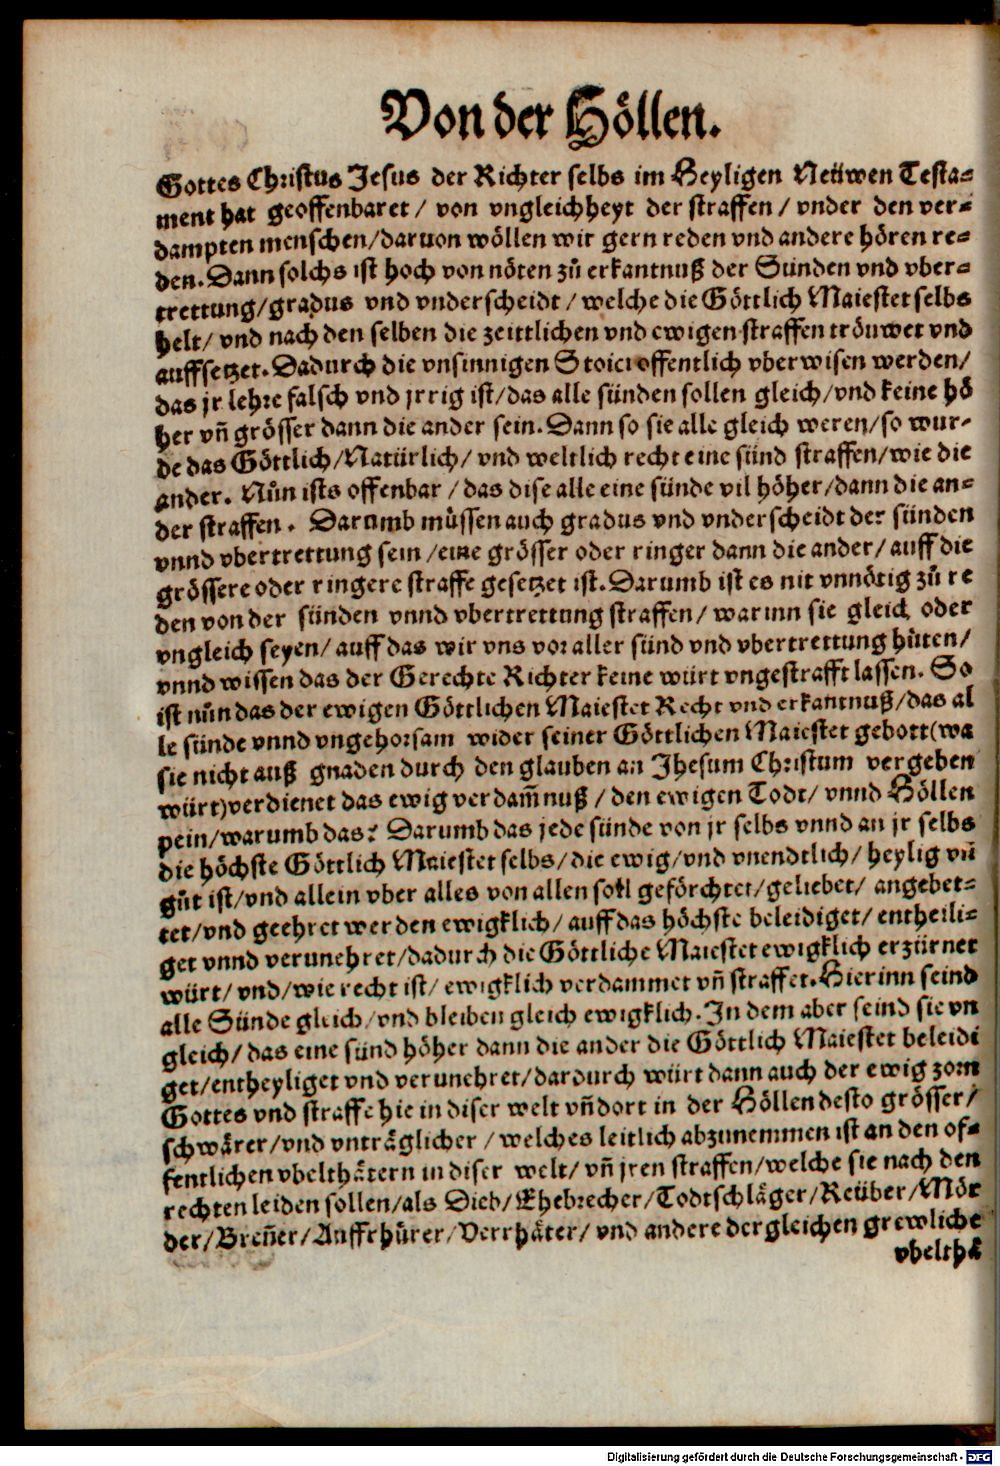 Von der Höllen.
Gottes Christus Jesus der Richter selbs im Heyligen Neüwen Testa-
ment hat geoffenbaret / von vngleichheyt der straffen / vnder den ver-
dampten menschen/daruon wöllen wir gern reden vnd andere hören re-
den. Dann solchs ist hoch von nöten zů erkantnuß der Sünden vnd vber-
trettung/gradus vnd vnderscheidt / welche die Göttlich Maiestet selbs
helt/ vnd nach den selben die zeittlichen vnd ewigen straffen tröuwet vnd
auffsetzet. Dadurch die vnsinnigen Stoici offentlich vberwisen werden/
das jr lehre falsch vnd jrrig ist/das alle sünden sollen gleich/vnd keine hö
her vñ grösser dann die ander sein. Dann so sie alle gleich weren/so wur-
de das Göttlich/Natürlich/ vnd weltlich recht eine sünd straffen/wie die
ander. Nůn ists offenbar / das dise alle eine sünde vil höher/dann die an-
der straffen. Darumb müssen auch gradus vnd vnderscheidt der sünden
vnnd vbertrettung sein /eine grösser oder ringer dann die ander/ auff die
grössere oder ringere straffe gesetzet ist. Darumb ist es nit vnnötig zů re
den von der sünden vnnd vbertrettung straffen/ warinn sie gleich oder
vngleich seyen/ auff das wir vns vor aller sünd vnd vbertrettung hüten/
vnnd wissen das der Gerechte Richter keine würt vngestrafft lassen. So
ist nůn das der ewigen Göttlichen Maiestet Recht vnd erkantnuß/das al
le sünde vnnd vngehorsam wider seiner Göttlichen Maiestet gebott(wa
sie nicht auß gnaden durch den glauben an Jhesum Christum vergeben
würt)verdienet das ewig verdam̃nuß / den ewigen Todt/ vnnd Höllen
pein/warumb das? Darumb das jede sünde von jr selbs vnnd an jr selbs
die höchste Göttlich Maiestet selbs/die ewig/vnd vnendtlich/ heylig vñ
gůt ist/vnd allein vber alles von allen soll geförchtet/geliebet/ angebet-
tet/vnd geehret werden ewigklich/ auff das höchste beleidiget/ entheili-
get vnnd verunehret/dadurch die Göttliche Maiestet ewigklich erzürnet
würt/ vnd/wie recht ist/ ewigklich verdammet vñ straffet. Hierinn seind
alle Sünde gleich/vnd bleiben gleich ewigklich. In dem aber seind sie vn
gleich/ das eine sünd höher dann die ander die Göttlich Maiestet beleidi
get/entheyliget vnd verunehret/dardurch würt dann auch der ewig zorn
Gottes vnd straffe hie in diser welt vñ dort in der Höllen desto grösser/
schwärer/vnd vnträglicher / welches leitlich abzunemmen ist an den of-
fentlichen vbelthätern in diser welt/ vñ jren straffen/welche sie nach den
rechten leiden sollen/als Dieb/ Ehebrecher/Todtschläger/Reüber/Mör
der/Breñer/Auffrhürer/Verrhäter/ vnd andere dergleichen grewliche
vbelthä
Digitalisierung gefördert durch die Deutsche Forschungsgemeinschaft - DFG